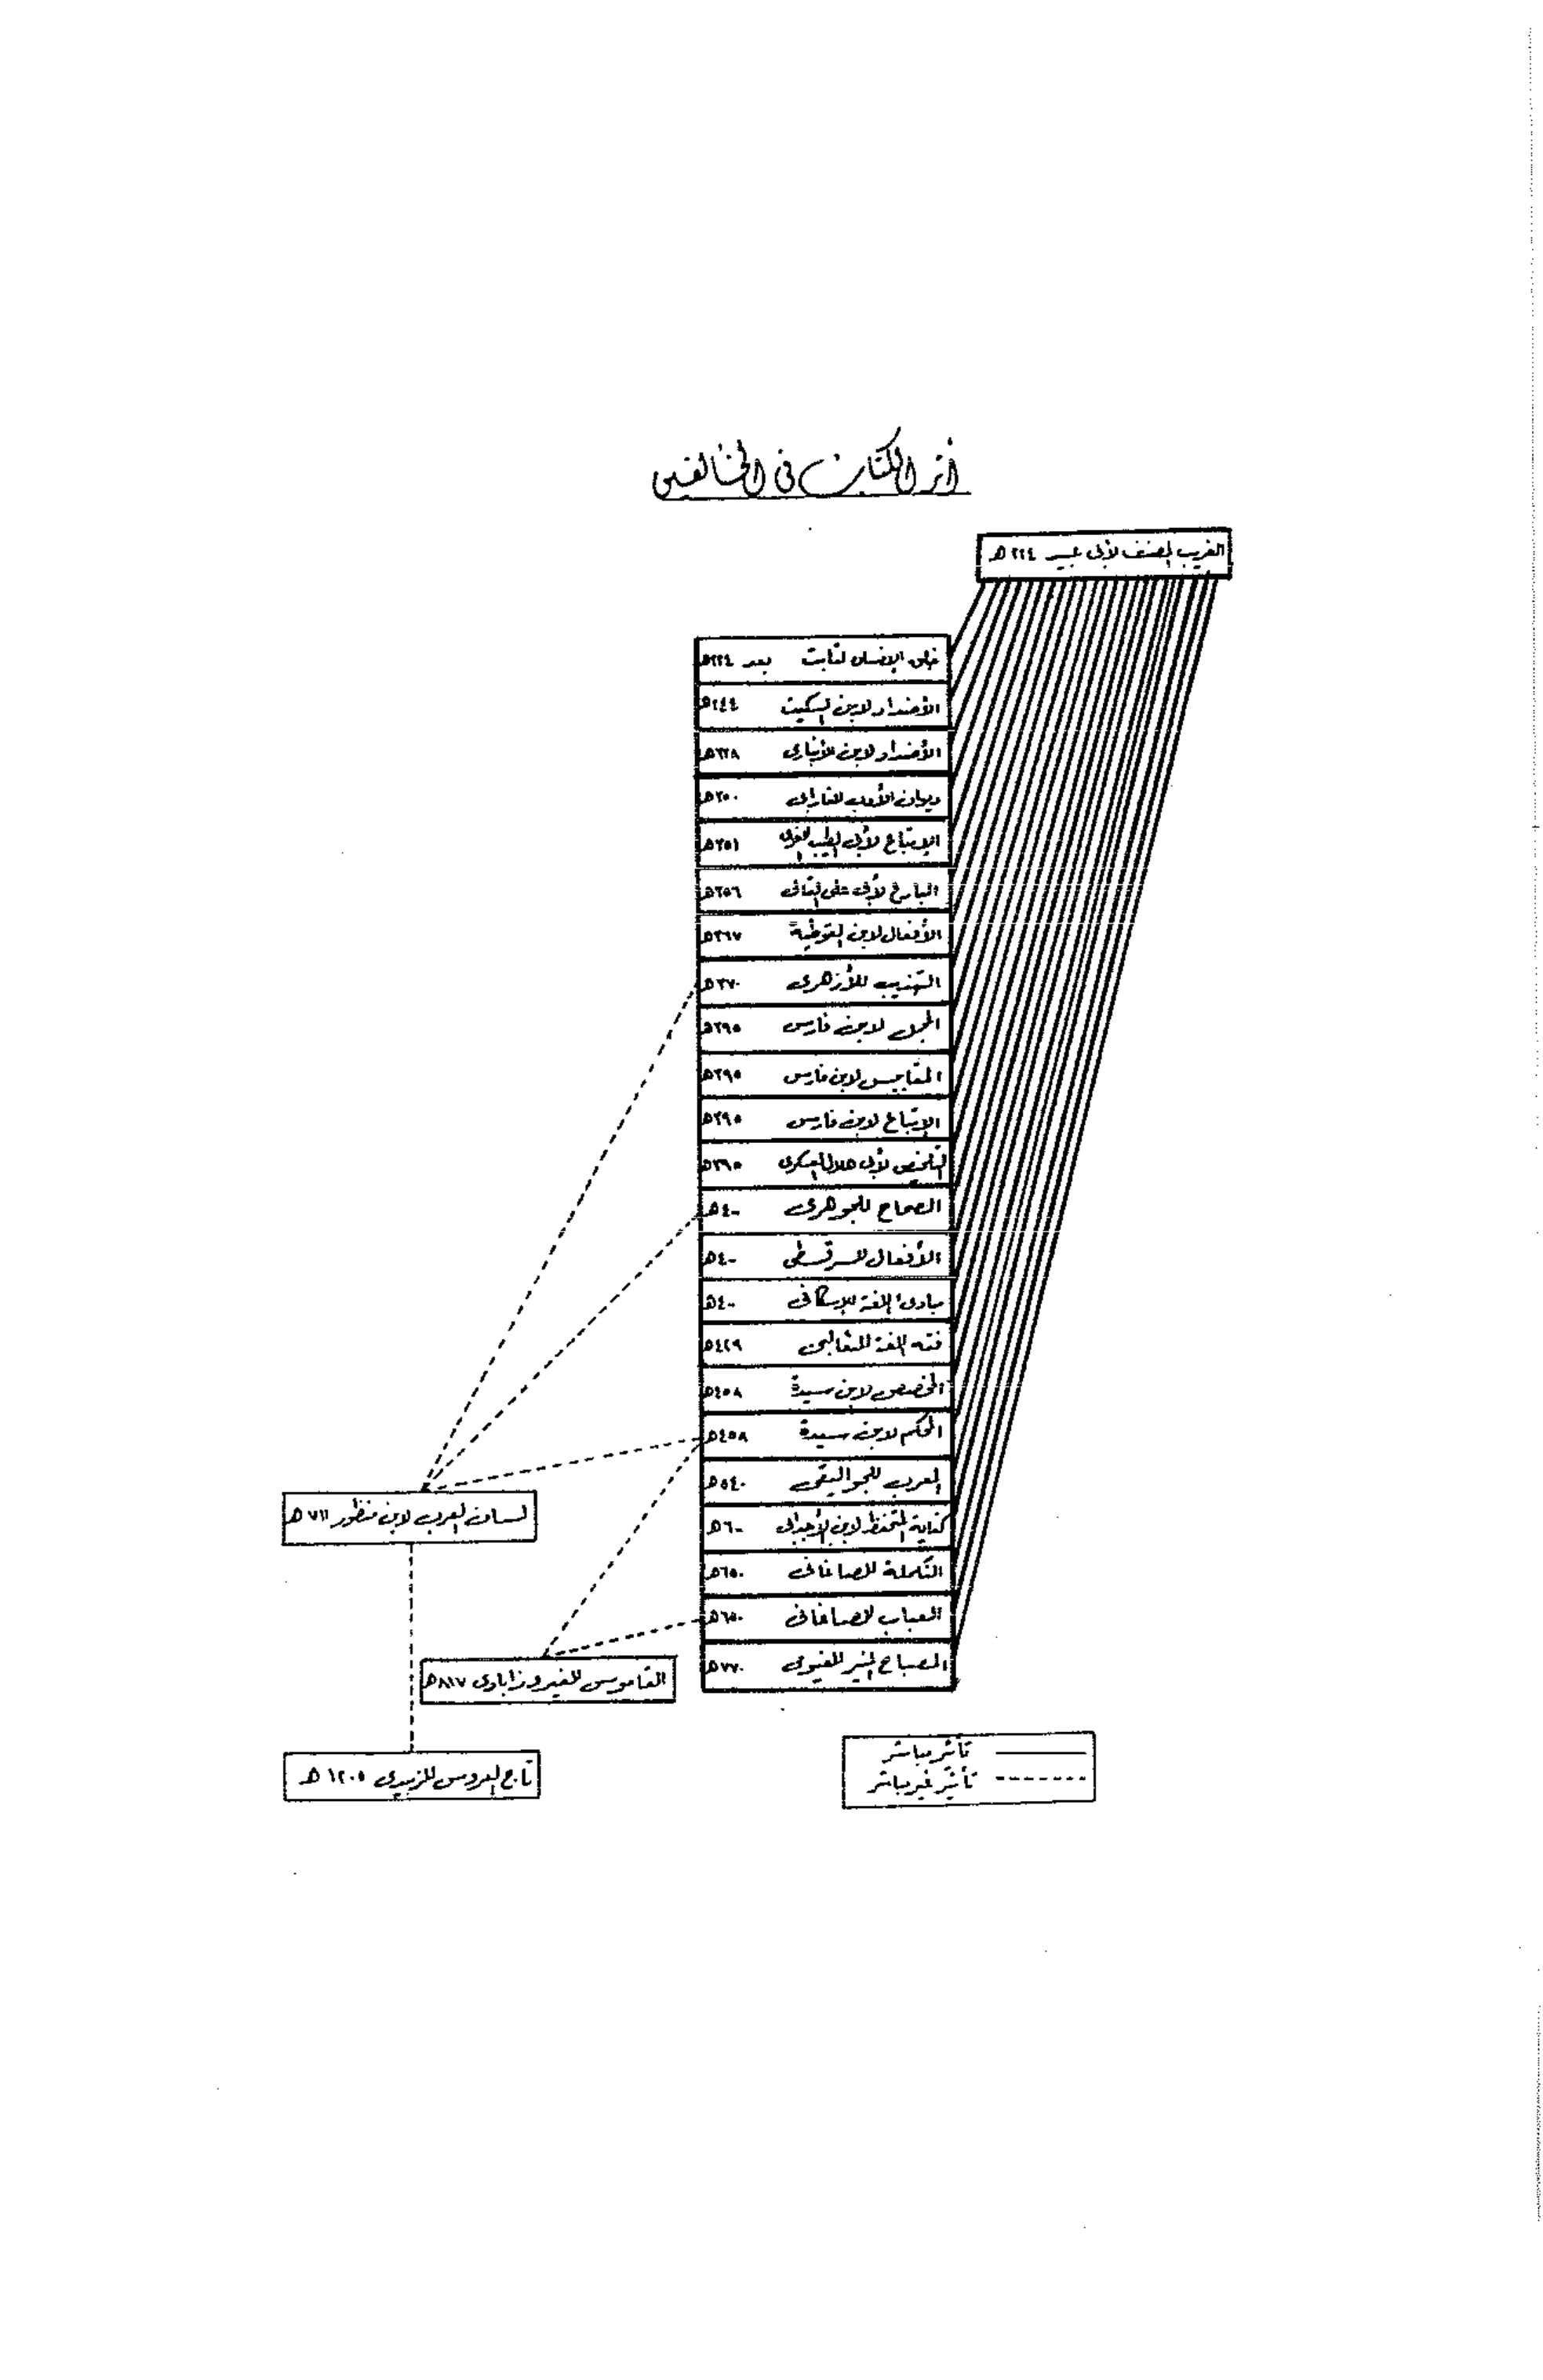 أثر الكتاب في الخالفين
الغريب المصنف لأبى عبيد ٢٢٤هـ
خلق الإنسان لثابت بعد ٢٢٤هـ
الأضداد لابن السكيت ٢٤٤هـ
الأضداد لابن الأنبارى ٣٢٨هـ
ديوان الأدب للفارابى ٣٥٠هـ
الإتباع لأبى الطيب اللغوى ٣٥١هـ
البارع لأبى على القالى ٣٥٦هـ
الأفعال لابن القوطية ٣٦٧هـ
التهذيب للأزهرى ٣٧٠هـ
المجمل لابن فارس ٣٩٥هـ
المقاييس لابن فارس ٣٩٥هـ
الإتباع لابن فارس ٣٩٥هـ
التلخيص لأبى هلال العسكرى ٣٩٥هـ
الصحاح للجوهرى ٤٠٠هـ
الأفعال للسرقسطى ٤٠٠هـ
مبادئ اللغة للإسكافى ٤٠٠هـ
فقه اللغة للثعالبى ٤٢٩هـ
المخصص لابن سيدة ٤٥٨هـ
المحكم لابن سيدة ٤٥٨هـ
المعرب للجواليقى ٥٤٠هـ
كفاية المتحفظ لابن الأجدابى ٦٠٠هـ
التكملة للصاغانى ٦٥٠هـ
العباب للصاغانى ٦٥٠هـ
المصباح المنير للفيومى ٧٧٠هـ
لسان العرب لابن منظور ٧١١هـ
القاموس للفيروزابادى ٨١٧هـ
تاج العروس للزبيدى ١٢٠٥هـ
تأثير مباشر
تأثير غير مباشر